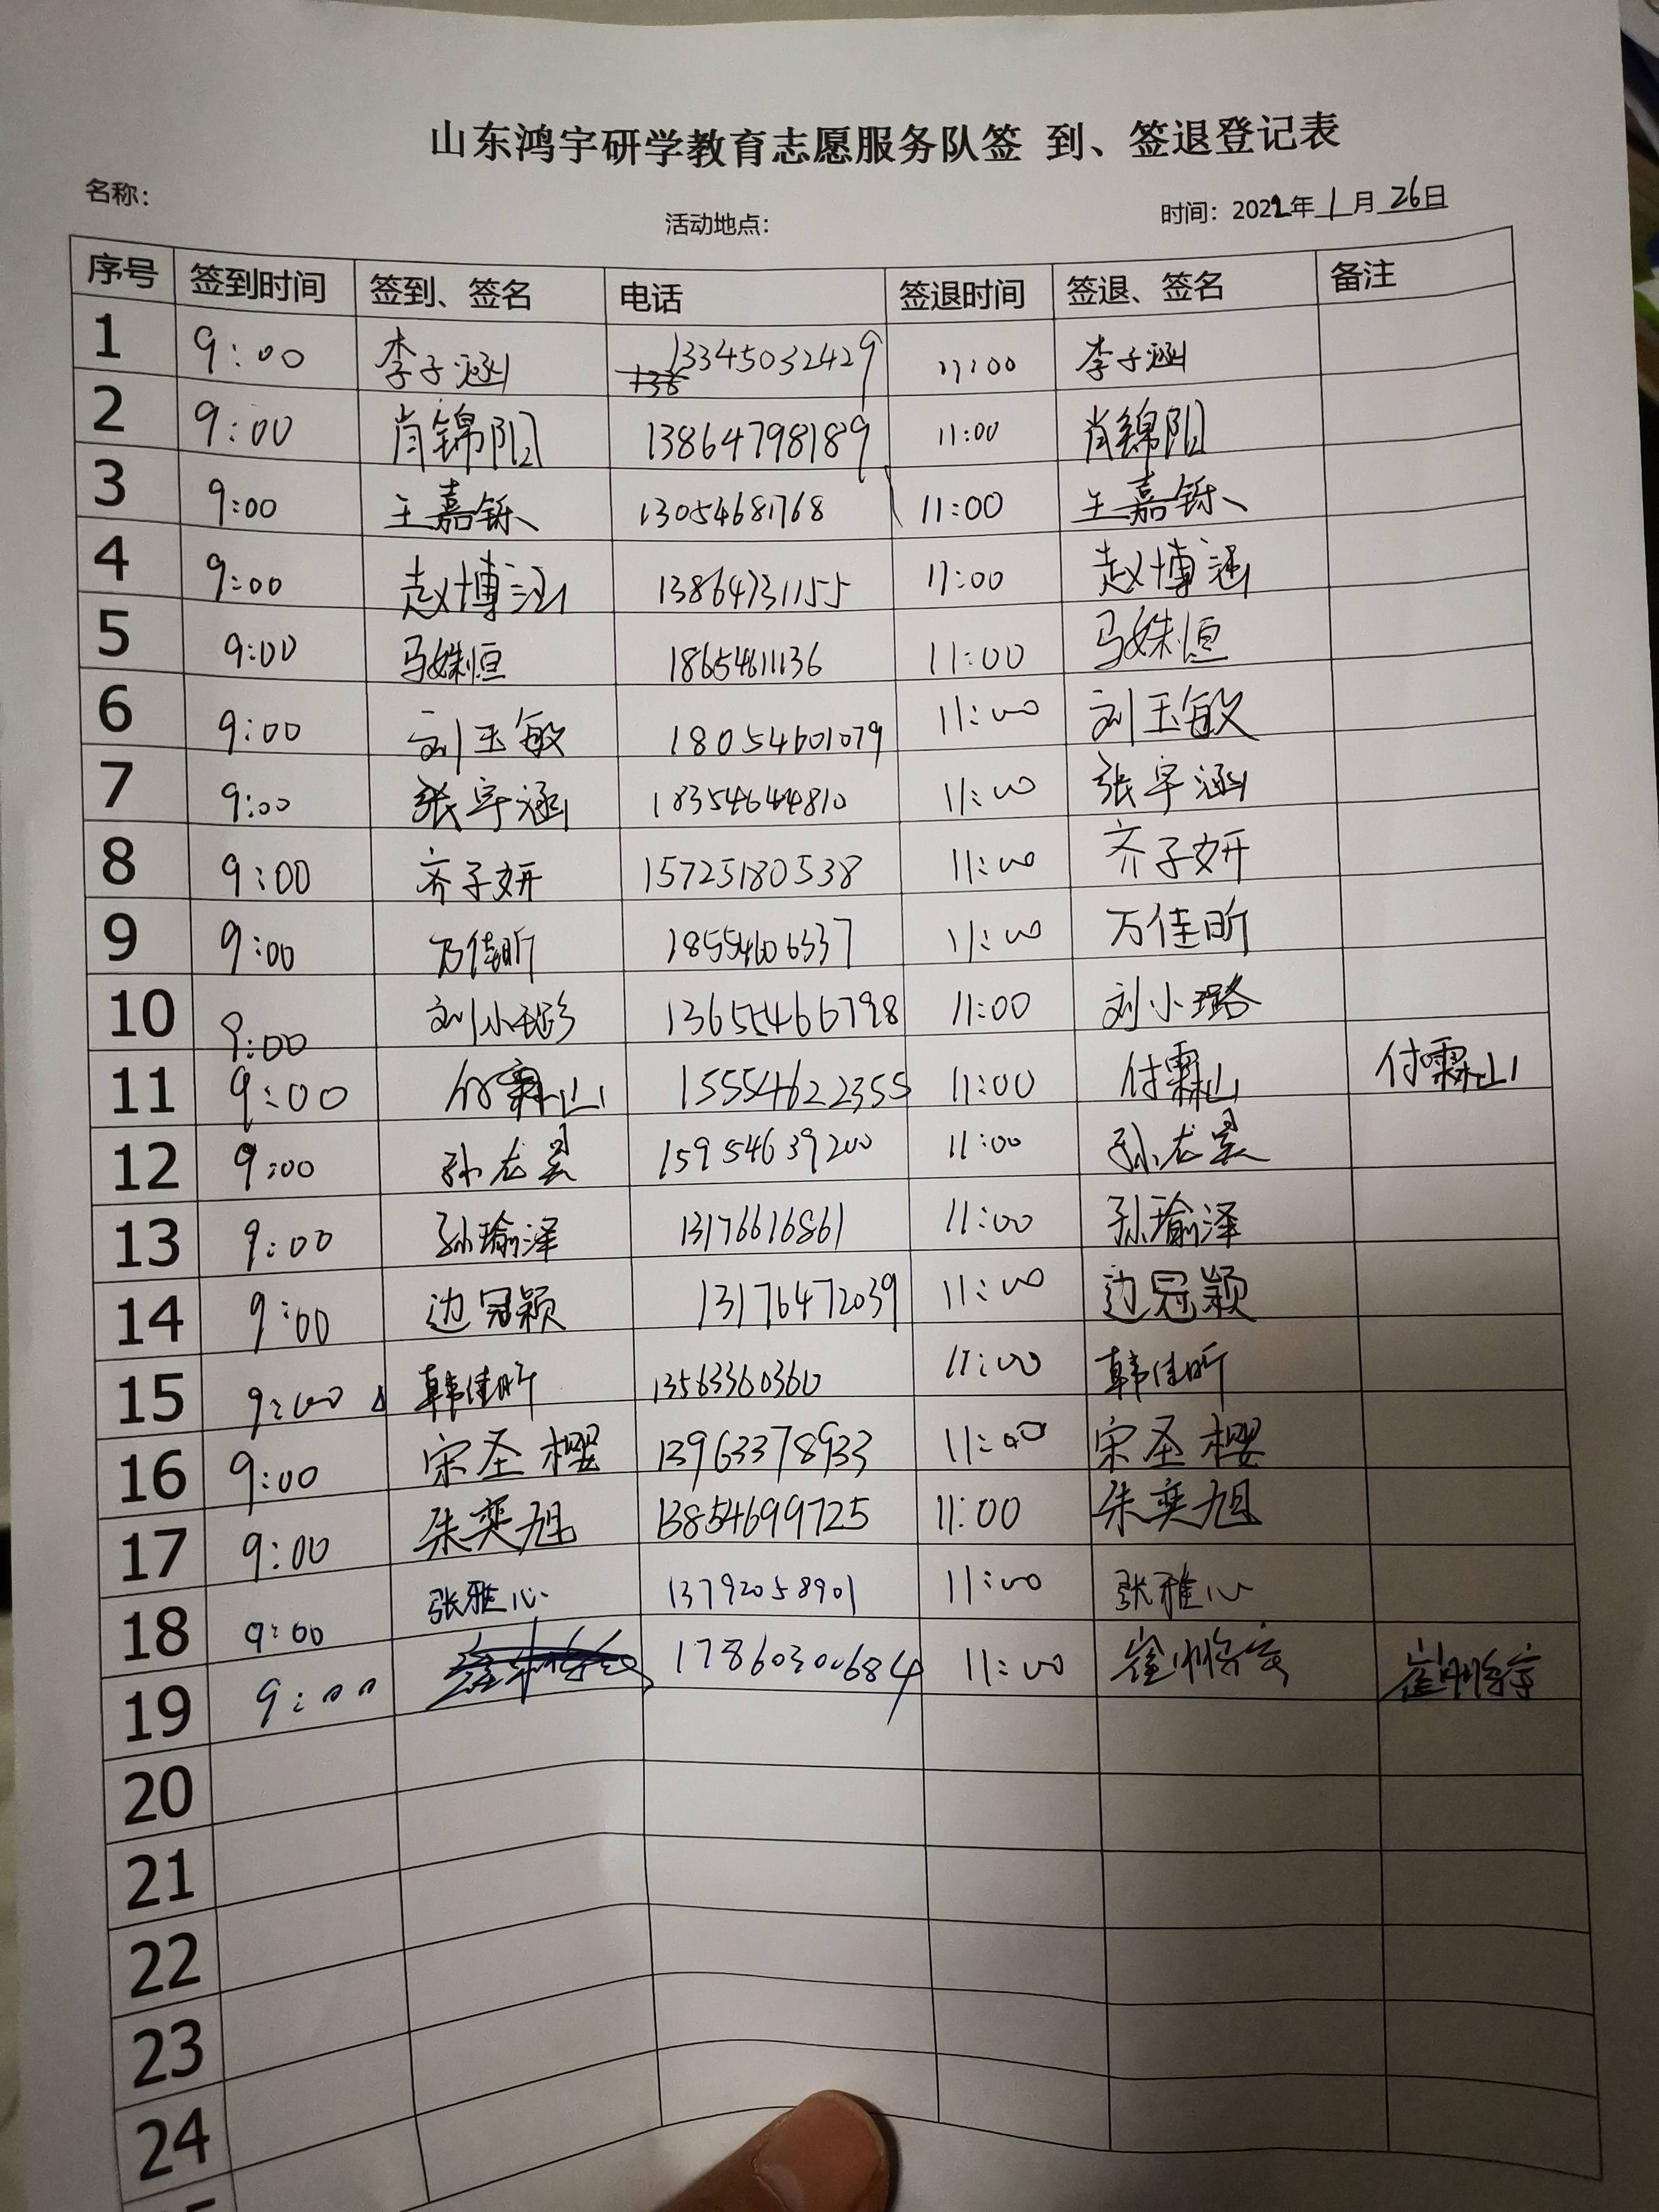 山东鸿宇研学教育志愿服务队签 到、签退登记表
名称：
活动地点：
时间：2022年 1 月 26日
序号 签到时间 签到、签名 电话 签退时间 签退、签名 备注
1 9:00 李子涵 13345032429 11:00 李子涵
2 9:00 肖锦阳 13864798189 11:00 肖锦阳
3 9:00 王嘉铄 13054681768 11:00 王嘉铄
4 9:00 赵博涵 13864731155 11:00 赵博涵
5 9:00 马姝恒 18654611136 11:00 马姝恒
6 9:00 刘玉敏 18054601079 11:00 刘玉敏
7 9:00 张宇涵 18354644810 11:00 张宇涵
8 9:00 齐子妍 15725180538 11:00 齐子妍
9 9:00 万佳昕 18554606337 11:00 万佳昕
10 9:00 刘小璐 13655466798 11:00 刘小璐
11 9:00 付霖山 15554622355 11:00 付霖山 付霖山
12 9:00 孙龙昊 15954639200 11:00 孙龙昊
13 9:00 孙瑜泽 13176616861 11:00 孙瑜泽
14 9:00 边冠颖 13176472039 11:00 边冠颖
15 9:00 韩佳昕 13563360360 11:00 韩佳昕
16 9:00 宋圣樱 13963378933 11:00 宋圣樱
17 9:00 朱奕旭 13854699725 11:00 朱奕旭
18 9:00 张雅心 13792058901 11:00 张雅心
19 9:00 17860300684 11:00
20
21
22
23
24